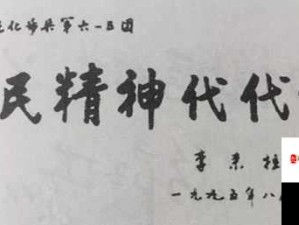 化步兵第六一五团
民精神代代
李来柱
一九九五年八